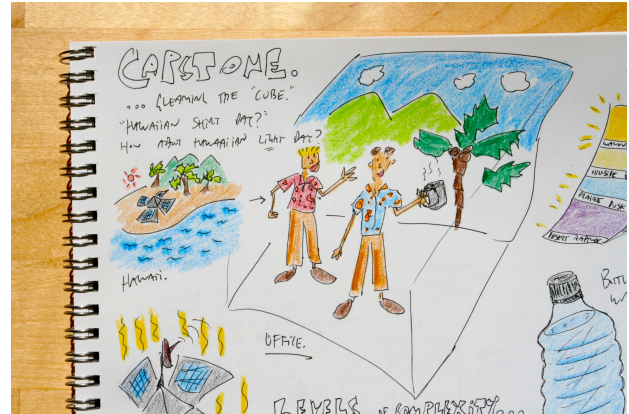 CAPSTONE.
... GLEAMING THE "CUBE."
"HAWAIIAN SHIRT DAY?"
HOW ABOUT HAWAIIAN LIGHT DAY?
HAWAII.
OFFICE.
LEVELS OF COMPLEXITY...
DESERT